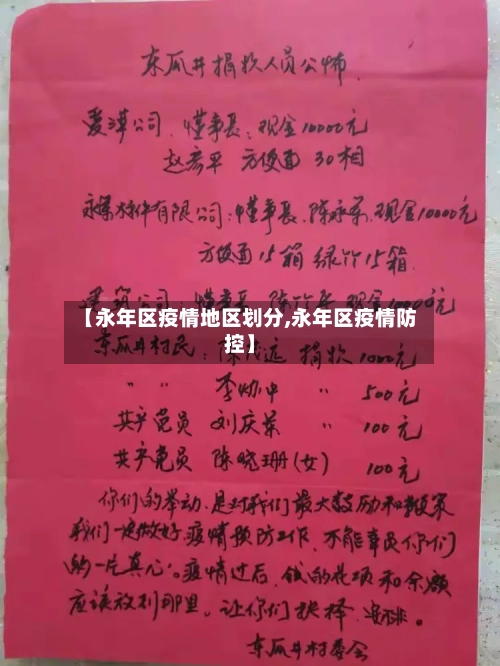 东瓜井捐款人员公怖
爱洋公司 懂事长:现金10000元
赵彦平 方便面 30相
永荣木件有限公司:懂事长 陈永荣 现金10000元
方便面15箱 绿竹15箱
【永年区疫情地区划分,永年区疫情防
控】
东瓜井村民: 捐款 1000元
" " 李 中 " 500元
共产党员 刘庆荣 " 100元
共产党员 陈晓珊(女) 100元
你们的举动,是对我们最大鼓励和
我们一定做好疫情预防工作,不能辜负你们
的一片真心。疫情过后,钱的花项和余额
应该放到那里。让你们抉择,安排。
东瓜井村委会